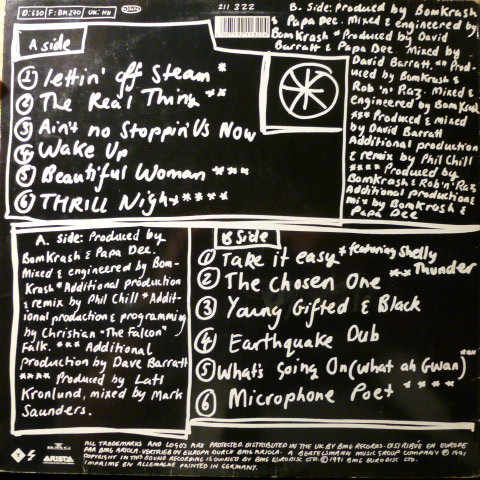 D: 620 / F: BM 270 / UK: HN
211 322
A side
① Lettin' off Steam *
② The Real Thing **
③ Ain't no Stoppin' Us Now
④ Wake Up
⑤ Beautiful Woman ***
⑥ THRILL Night ****
B. Side: Produced by BomKrash
& Papa Dee. Mixed & engineered by
BomKrash * Produced by David
Barratt & Papa Dee. Mixed by
David Barratt. ** Prod-
uced by BomKrash &
Rob 'n' Raz. Mixed &
Engineered by BomKrash
*** Produced & mixed
by David Barratt
Additional production
& remix by Phil Chill
**** Produced by
BomKrash & Rob 'n' Raz
Additional production &
mix by BomKrash &
Papa Dee
A. Side: Produced by
BomKrash & Papa Dee.
Mixed & engineered by Bom-
Krash * Additional production
& remix by Phil Chill * Addit-
ional production & programming
by Christian "The Falcon"
Falk. *** Additional
production by Dave Barratt
**** Produced by Latl
Kronlund, mixed by Mark
Saunders.
B Side
① Take it easy * featuring Shelly
** Thunder
② The Chosen One
③ Young Gifted & Black
④ Earthquake Dub
⑤ What's Going On (What ah Gwan) ***
⑥ Microphone Poet ****
BMG
ARIOLA
ARISTA
ALL TRADEMARKS AND LOGO'S ARE PROTECTED. DISTRIBUTED IN THE UK BY BMG RECORDS. DISTRIBUÉE EN EUROPE
PAR BMG ARIOLA. VERTRIEB IN EUROPA DURCH BMG ARIOLA. A BERTELSMANN MUSIC GROUP COMPANY Ⓟ 1991
COPYRIGHT IN THIS SOUND RECORDING IS OWNED BY BMG EURODISC LTD. © 1991 BMG EURODISC LTD.
IMPRIME EN ALLEMAGNE PRINTED IN GERMANY.